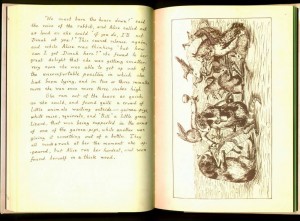 "We must burn the house down!" said
the voice of the rabbit, and Alice called out
as loud as she could "if you do, I'll set
Dinah at you!" This caused silence again,
and while Alice was thinking "but how
can I get Dinah here?" she found to her
great delight that she was getting smaller:
very soon she was able to get up out of
the uncomfortable position in which she
had been lying, and in two or three minutes
more she was once more three inches high.
She ran out of the house as quick
as she could, and found quite a crowd of
little animals waiting outside—guinea pigs,
white mice, squirrels, and "Bill" a little green
lizard, that was being supported in the arms
of one of the guinea-pigs, while another was
giving it something out of a bottle. They
all made a rush at her the moment she ap-
peared, but Alice ran her hardest, and soon
found herself in a thick wood.